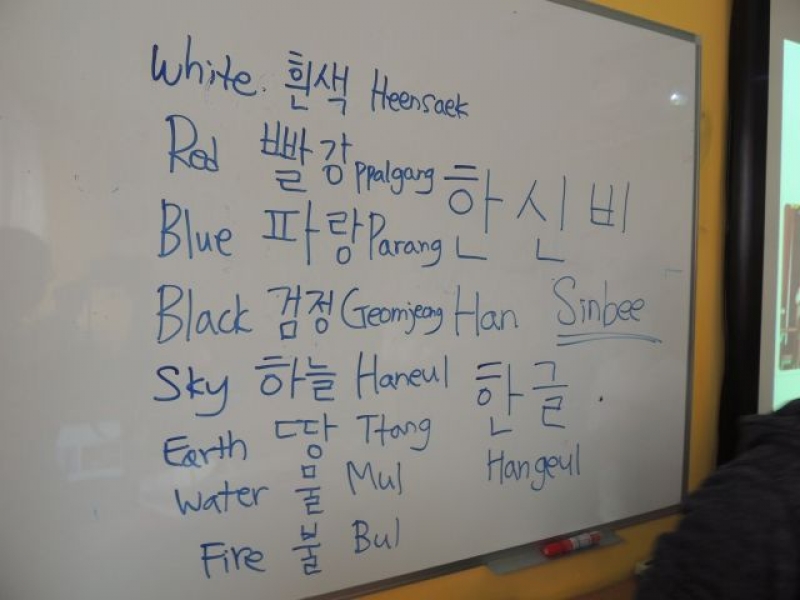 White. 흰색 Heensaek
Red 빨강 ppalgang
Blue 파랑 Parang
Black 검정 Geomjeong
Sky 하늘 Haneul
Earth 땅 Ttang
Water 물 Mul
Fire 불 Bul
한신비
Han Sinbee
한글.
Hangeul